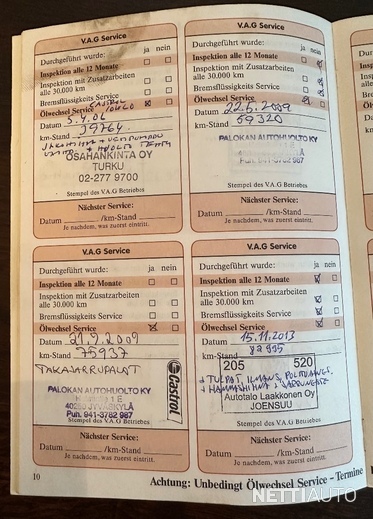 V.A.G Service
Durchgeführt wurde: ja nein
Inspektion alle 12 Monate
Inspektion mit Zusatzarbeiten
alle 30.000 km
Bremsflüssigkeits Service
Ölwechsel Service
Datum 5.4.06
km-Stand 39764
OSAHANKINTA OY
TURKU
02-277 9700
Stempel des V.A.G Betriebes
Nächster Service:
Datum /km-Stand
Je nachdem, was zuerst eintritt.
V.A.G Service
Durchgeführt wurde: ja nein
Inspektion alle 12 Monate
Inspektion mit Zusatzarbeiten
alle 30.000 km
Bremsflüssigkeits Service
Ölwechsel Service
Datum 22.6.2009
km-Stand 69320
PALOKAN AUTOHUOLTO KY
Puh. 941-3782 987
Stempel des V.A.G Betriebes
Nächster Service:
Datum /km-Stand
Je nachdem, was zuerst eintritt.
V.A.G Service
Durchgeführt wurde: ja nein
Inspektion alle 12 Monate
Inspektion mit Zusatzarbeiten
alle 30.000 km
Bremsflüssigkeits Service
Ölwechsel Service
Datum 21.9.2009
km-Stand 75937
TAKAJARRUPALAT
PALOKAN AUTOHUOLTO KY
40250 JYVÄSKYLÄ
Puh. 941-3782 987
Castrol
Stempel des V.A.G Betriebes
Nächster Service:
Datum /km-Stand
Je nachdem, was zuerst eintritt.
V.A.G Service
Durchgeführt wurde: ja nein
Inspektion alle 12 Monate
Inspektion mit Zusatzarbeiten
alle 30.000 km
Bremsflüssigkeits Service
Ölwechsel Service
Datum 15.11.2013
km-Stand
205 520
+ TULPAT, ILMANS,
Autotalo Laakkonen Oy
JOENSUU
Stempel des V.A.G Betriebes
Nächster Service:
Datum /km-Stand
Je nachdem, was zuerst eintritt.
10
Achtung: Unbedingt Ölwechsel Service - Termine
NETTIAUTO